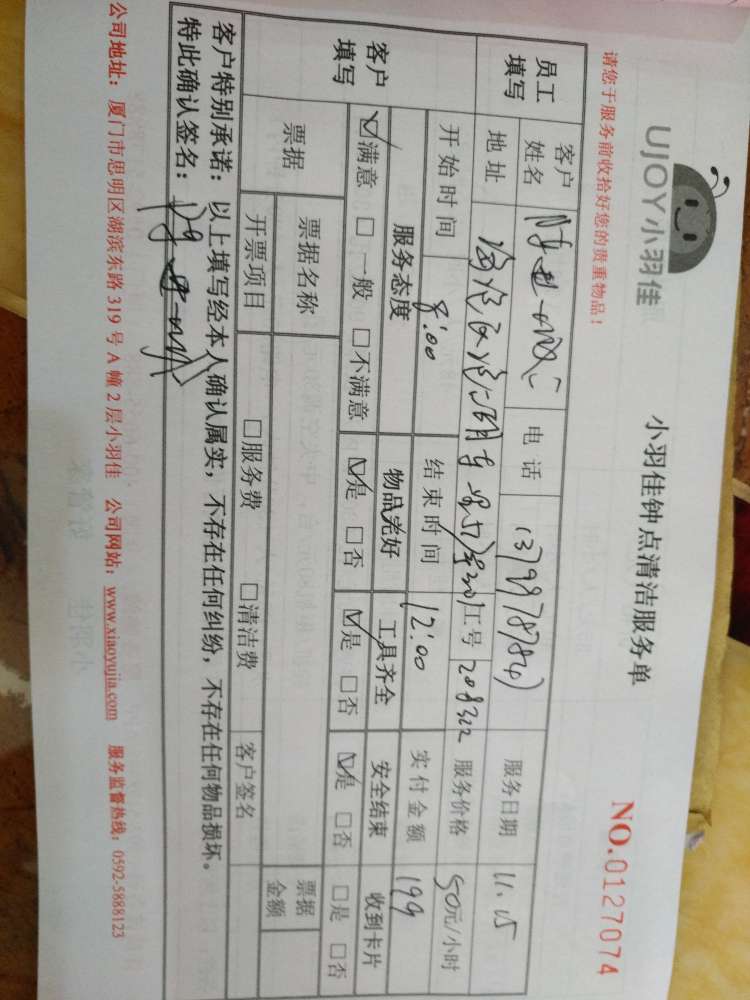 UJOY小羽佳
小羽佳钟点清洁服务单
请您于服务前收拾好您的贵重物品！
NO.0127074
员工填写
客户姓名
电话
服务日期 11.15
地址
工号 208322
服务价格 50元/小时
开始时间 8:00
结束时间 12:00
实付金额 199
客户填写
服务态度 物品完好 工具齐全 安全结束 收到卡片
☑满意 □一般 □不满意 ☑是 □否 ☑是 □否 ☑是 □否 □是 □否
票据
票据名称
票据金额
开票项目 □服务费 □清洁费 客户签名
客户特别承诺：以上填写经本人确认属实，不存在任何纠纷，不存在任何物品损坏。
特此确认签名：
公司地址：厦门市思明区湖滨东路 319 号 A 幢 2 层小羽佳 公司网站：www.xiaoyujia.com 服务监督热线：0592-5888123